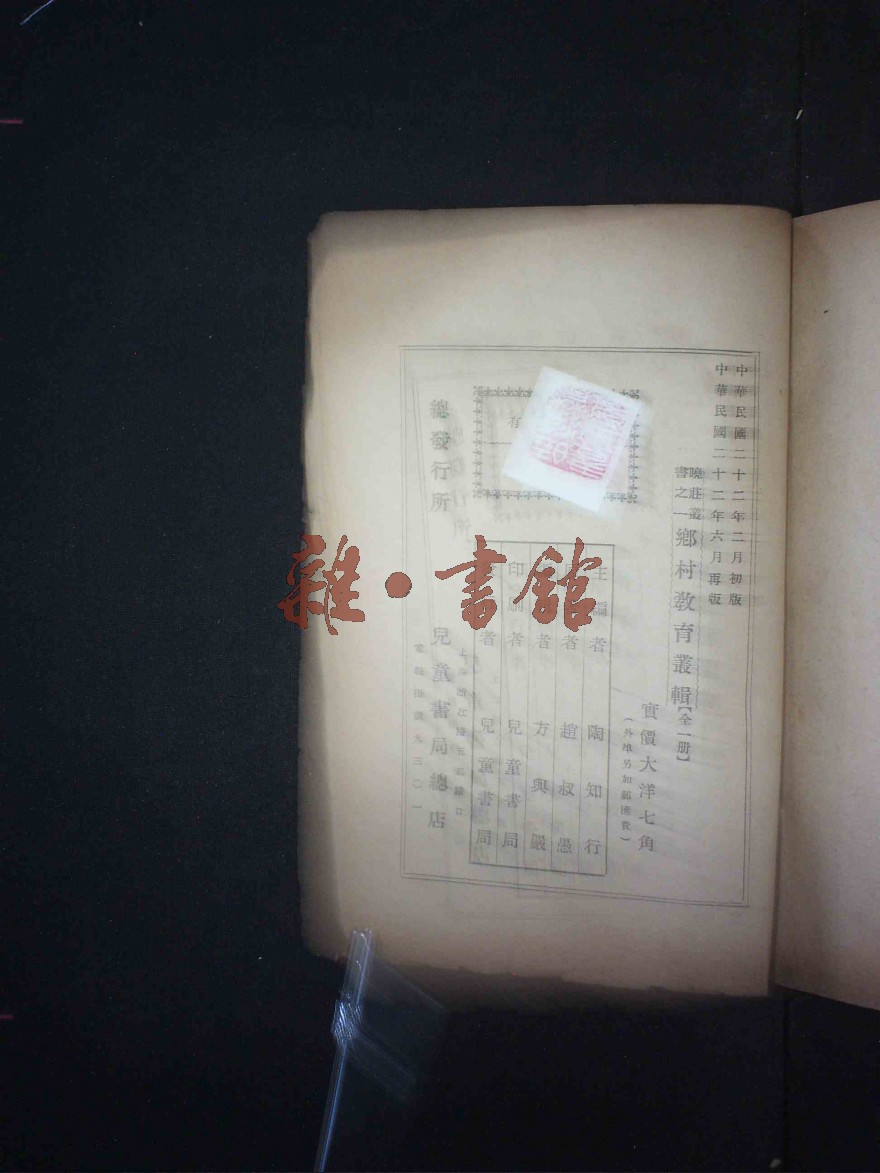 中華民國二十二年二月初版
中華民國二十二年六月再版
曉莊叢書之一
鄉村教育叢輯【全一册】
實價大洋七角
(外埠另加郵匯費)
有
主編者 陶知行
者 趙叔愚
者 方與嚴
印刷者 兒童書局
者 兒童書局
總發行所 兒童書局總店
雜·書館